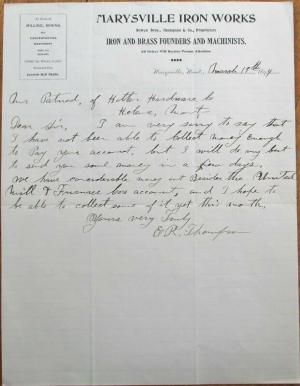 All Kinds of
MILLING, MINING,
MARYSVILLE IRON WORKS
Bowen Bros., Thompson & Co., Proprietors
IRON AND BRASS FOUNDERS AND MACHINISTS.
All Orders Will Receive Prompt Attention
Marysville, Mont., March 19th
Mr Patrod, of Holter Hardware Co
Helena, Mont.
Dear Sir, I am very sorry to say that
I have not been able to Collect money Enough
to Pay your account, but I will do my best
to send you some money in a few days,
We have considerable money out Besides the
Mill & Furnace Cos accounts, and I hope to
be able to collect some of it yet this month,
Yours very Truly
O R. Thompson